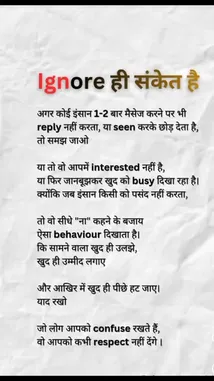 Ignore ही संकेत है
अगर कोई इंसान 1-2 बार मैसेज करने पर भी
reply नहीं करता, या seen करके छोड़ देता है,
तो समझ जाओ
या तो वो आपमें interested नहीं है,
या फिर जानबूझकर खुद को busy दिखा रहा है।
क्योंकि जब इंसान किसी को पसंद नहीं करता,
तो वो सीधे "ना" कहने के बजाय
ऐसा behaviour दिखाता है।
कि सामने वाला खुद ही उलझे,
खुद ही उम्मीद लगाए
और आखिर में खुद ही पीछे हट जाए।
याद रखो
जो लोग आपको confuse रखते हैं,
वो आपको कभी respect नहीं देंगे ।